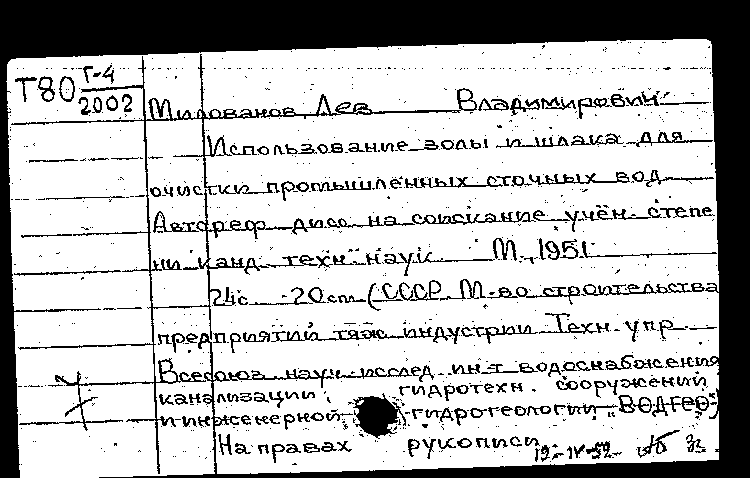 Т80 Г-4
2002
Милованов, Лев Владимирович
Использование золы и шлака для
очистки промышленных сточных вод
Автореф. дисс. на соискание учён. степе
ни канд. техн. наук. М., 1951
24с. 20см (СССР. М-во строительства
предприятий тяж. индустрии. Техн. упр.
Всесоюз. науч.-исслед. ин-т водоснабжения
канализации, гидротехн. сооружений
и инженерной гидрогеологии "Водгео")
На правах рукописи
19-IV-52